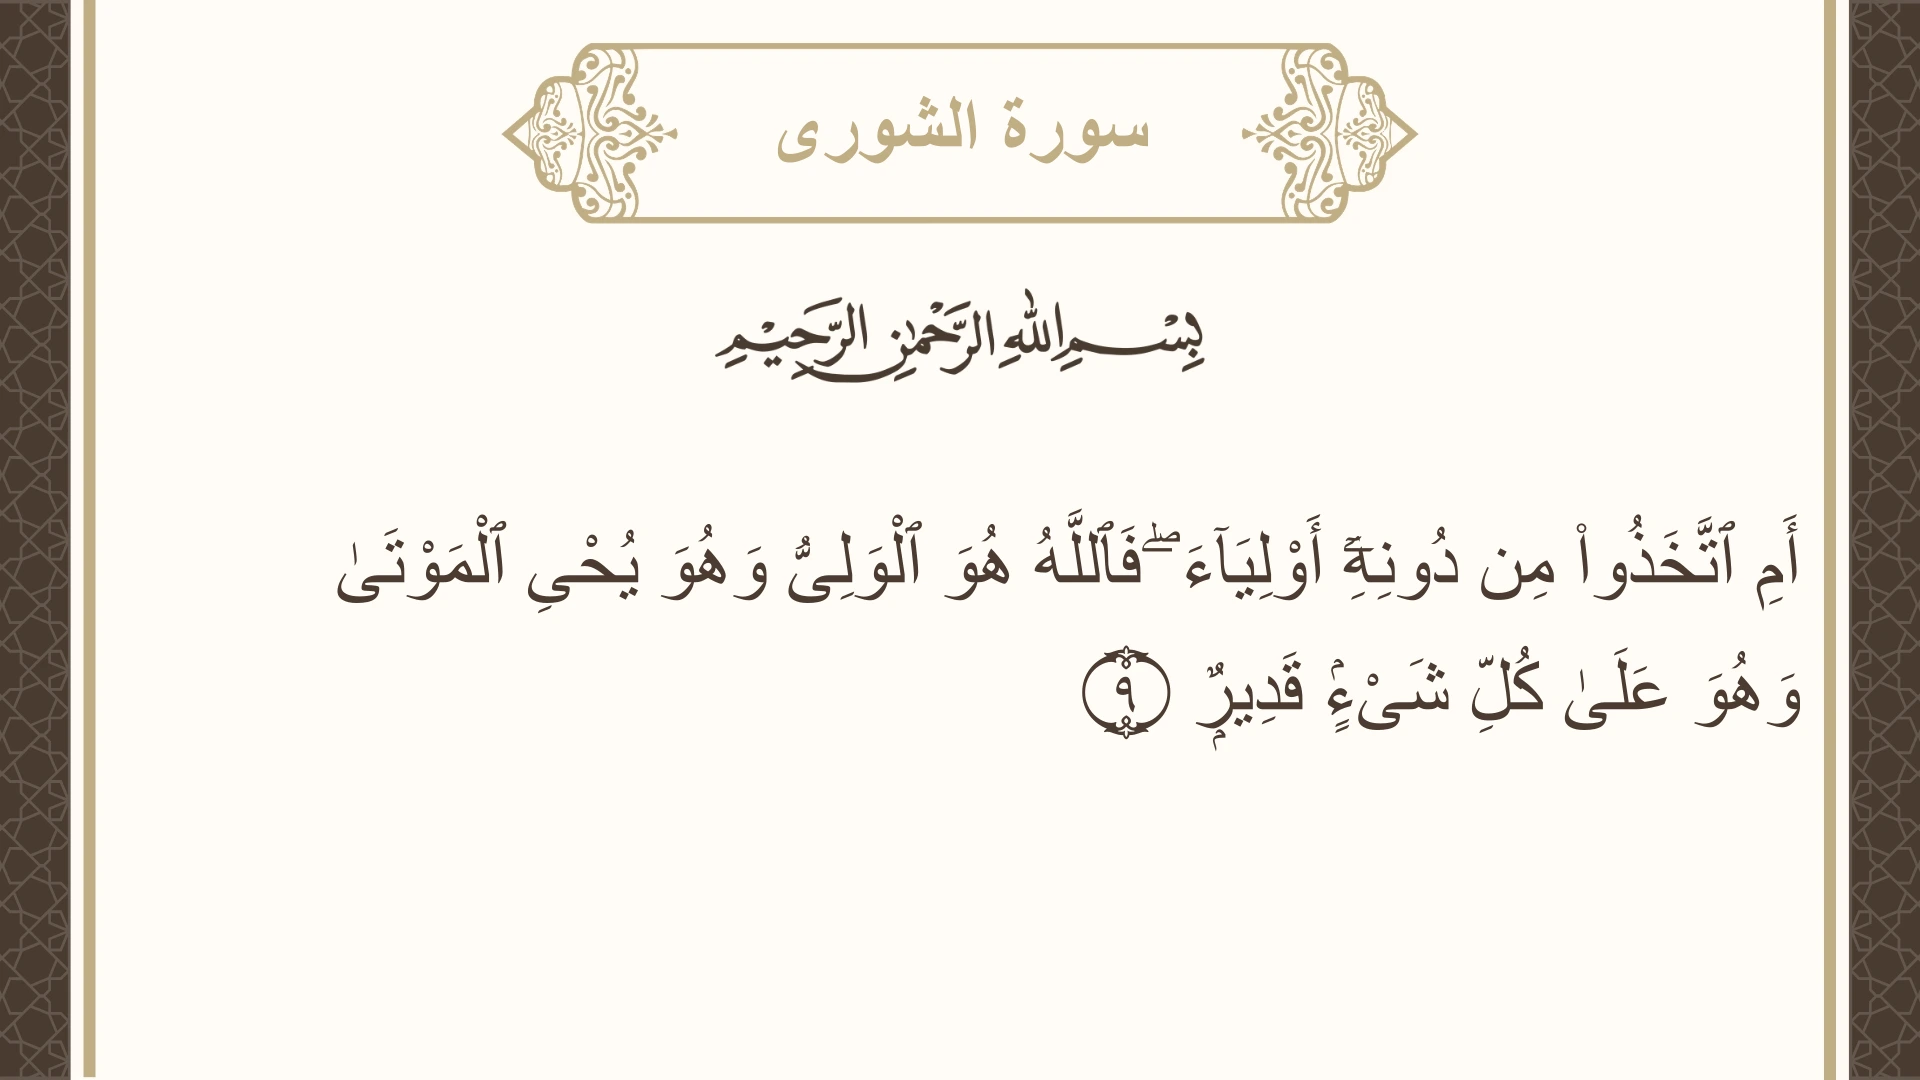 سورة الشورى
بِسْمِ اللهِ الرَّحْمٰنِ الرَّحِيْمِ
أَمِ ٱتَّخَذُوا۟ مِن دُونِهِۦٓ أَوْلِيَآءَ ۖ فَٱللَّهُ هُوَ ٱلْوَلِىُّ وَهُوَ يُحْىِ ٱلْمَوْتَىٰ
وَهُوَ عَلَىٰ كُلِّ شَىْءٍۢ قَدِيرٌۭ ٩